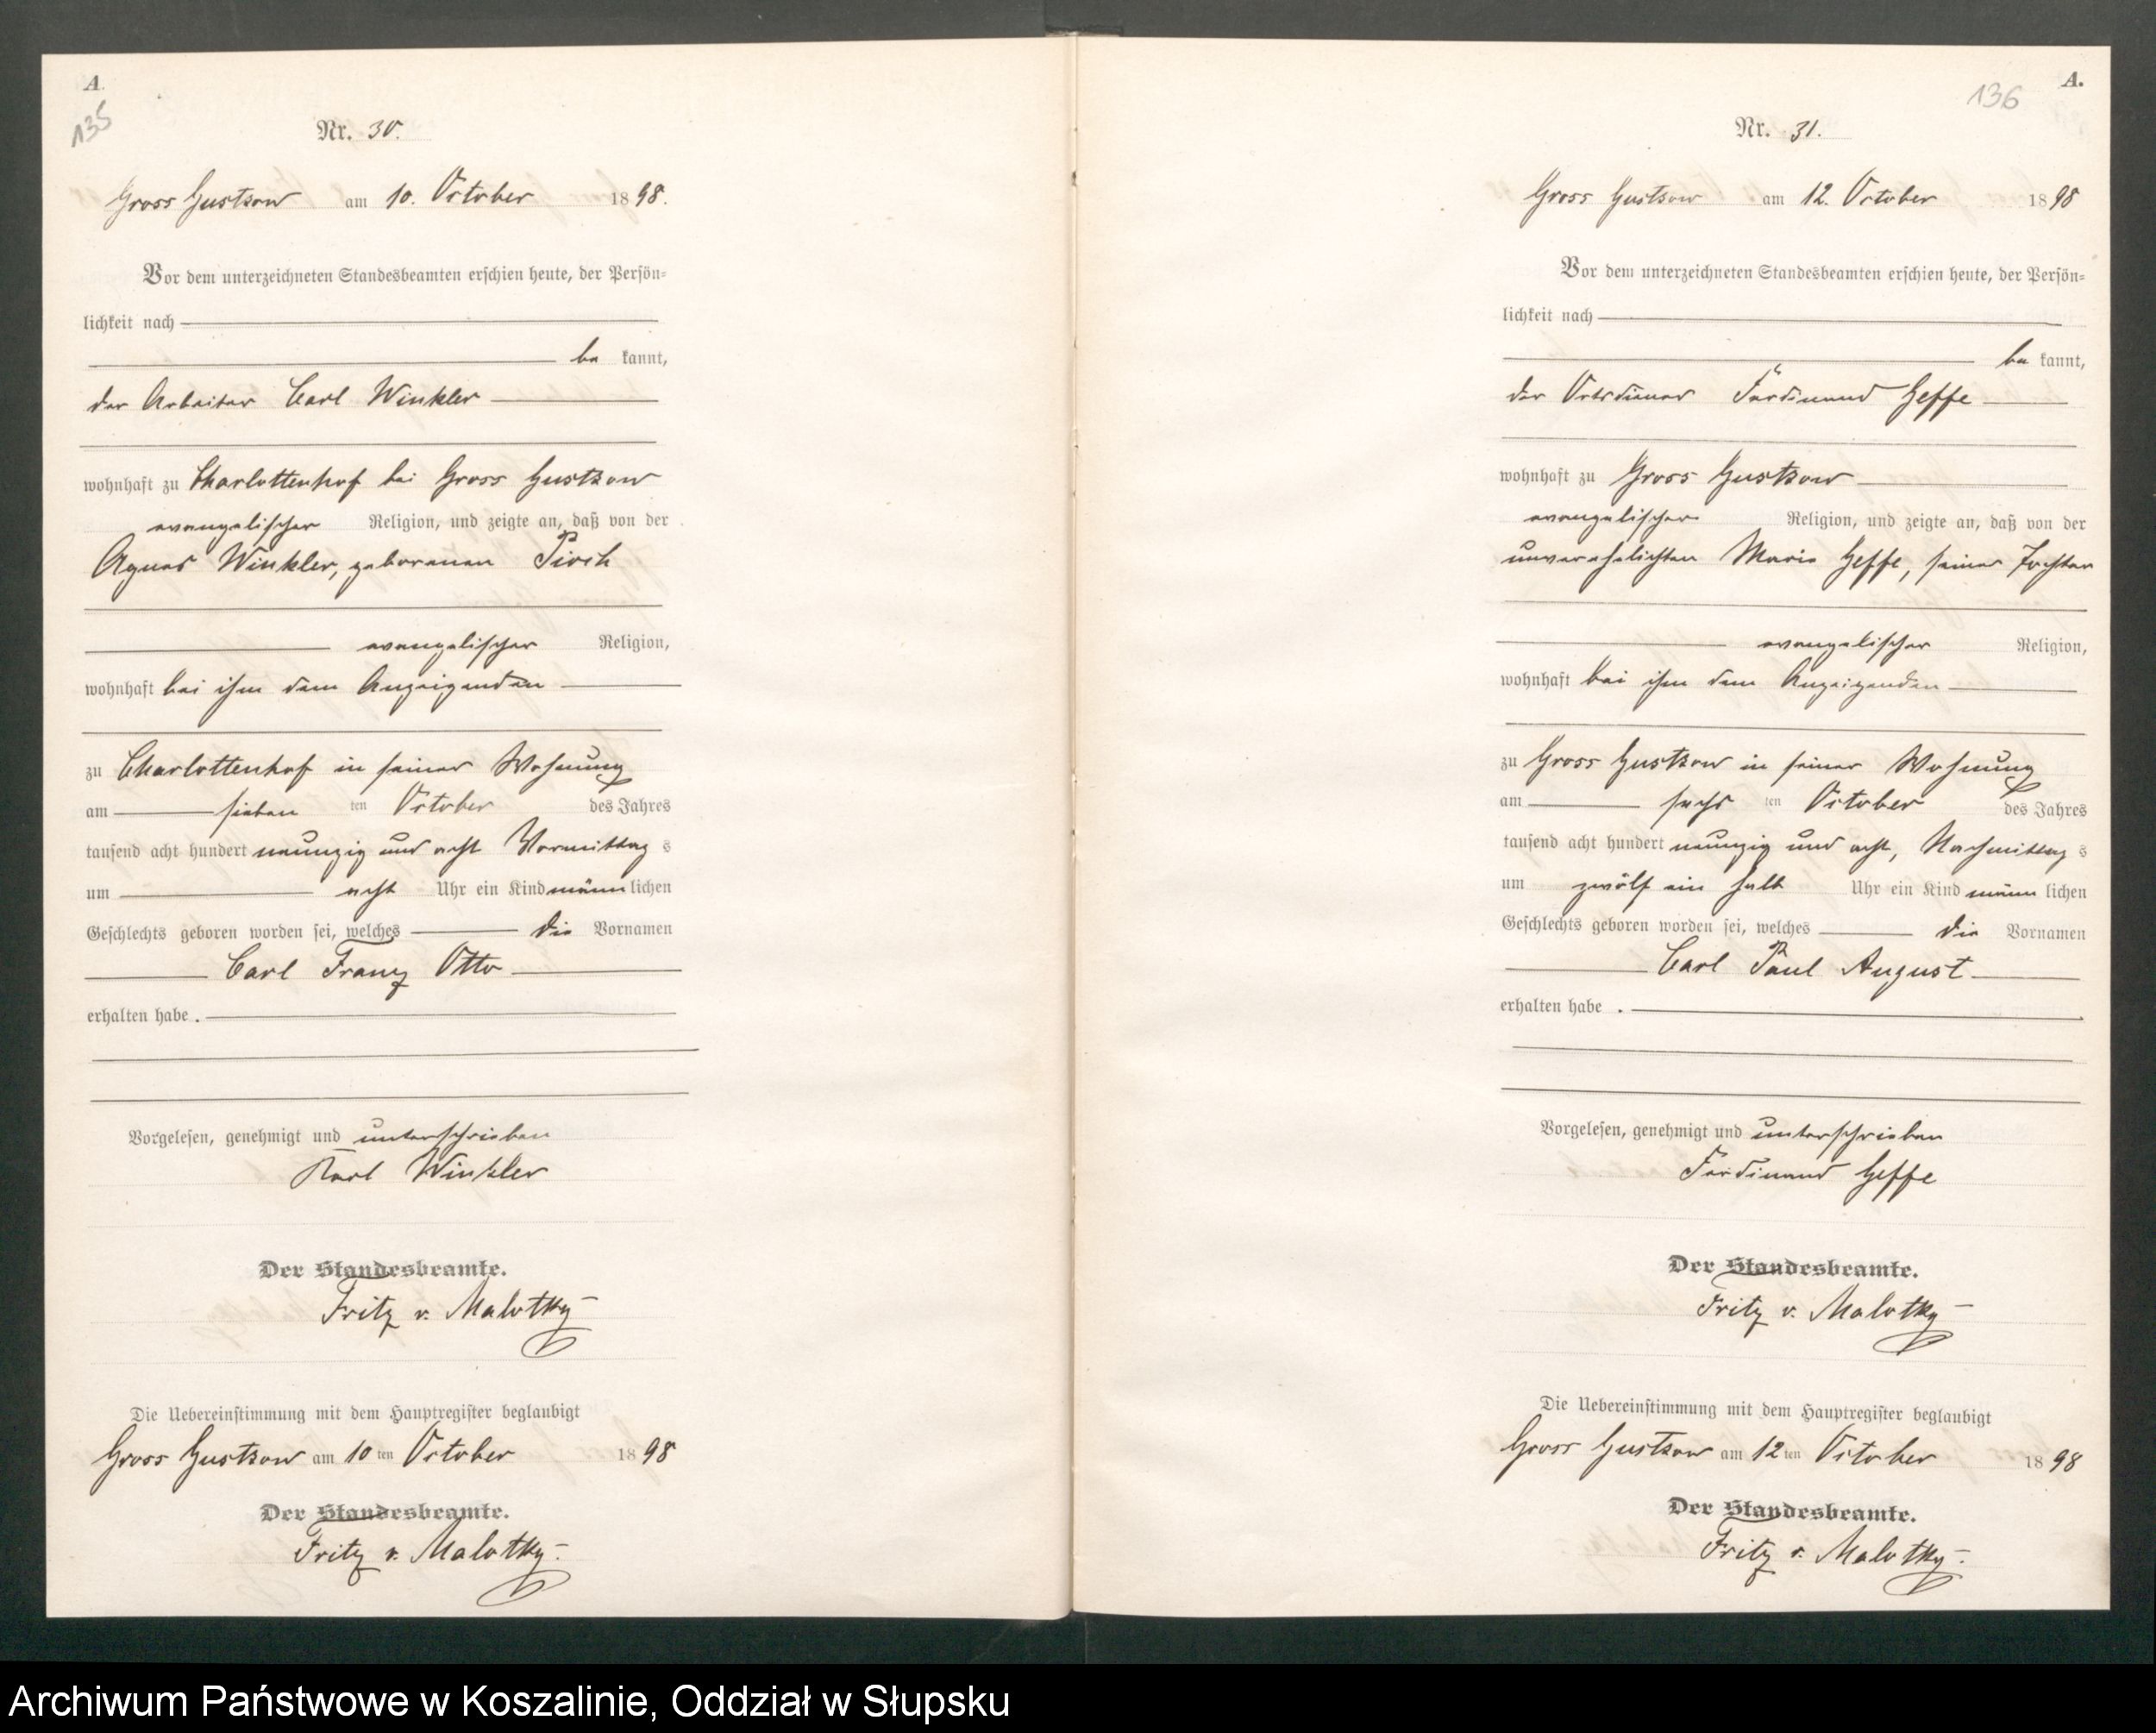 A.
135
Nr. 30.
Gross Gustkow am 10. October 1898.
Vor dem unterzeichneten Standesbeamten erschien heute, der Persön-
lichkeit nach
be kannt,
der Arbeiter Carl Winkler
wohnhaft zu Charlottenhof bei Gross Gustkow
evangelischer Religion, und zeigte an, daß von der
Agnes Winkler, geborenen Pioch
evangelischer Religion,
wohnhaft bei ihm dem Anzeigenden
zu Charlottenhof in seiner Wohnung
am sieben ten October des Jahres
tausend acht hundert neunzig und acht Vormittag s
um acht Uhr ein Kind männ lichen
Geschlechts geboren worden sei, welches die Vornamen
Carl Franz Otto
erhalten habe.
Vorgelesen, genehmigt und unterschrieben
Karl Winkler
Der Standesbeamte.
Fritz v. Malotky
Die Uebereinstimmung mit dem Hauptregister beglaubigt
Gross Gustkow am 10 ten October 1898
Der Standesbeamte.
Fritz v. Malotky.
136
A.
Nr. 31.
Gross Gustkow am 12. October 1898
Vor dem unterzeichneten Standesbeamten erschien heute, der Persön-
lichkeit nach
be kannt,
der Ortsdiener Ferdinand Geffe
wohnhaft zu Gross Gustkow
evangelischer Religion, und zeigte an, daß von der
unverehelichten Marie Geffe, seiner Tochter
evangelischer Religion,
wohnhaft bei ihm dem Anzeigenden
zu Gross Gustkow in seiner Wohnung
am sechs ten October des Jahres
tausend acht hundert neunzig und acht, Nachmittag s
um zwölf ein halb Uhr ein Kind männ lichen
Geschlechts geboren worden sei, welches die Vornamen
Carl Paul August
erhalten habe.
Vorgelesen, genehmigt und unterschrieben
Ferdinand Geffe
Der Standesbeamte.
Fritz v. Malotky
Die Uebereinstimmung mit dem Hauptregister beglaubigt
Gross Gustkow am 12 ten October 1898
Der Standesbeamte.
Fritz v. Malotky.
Archiwum Państwowe w Koszalinie, Oddział w Słupsku